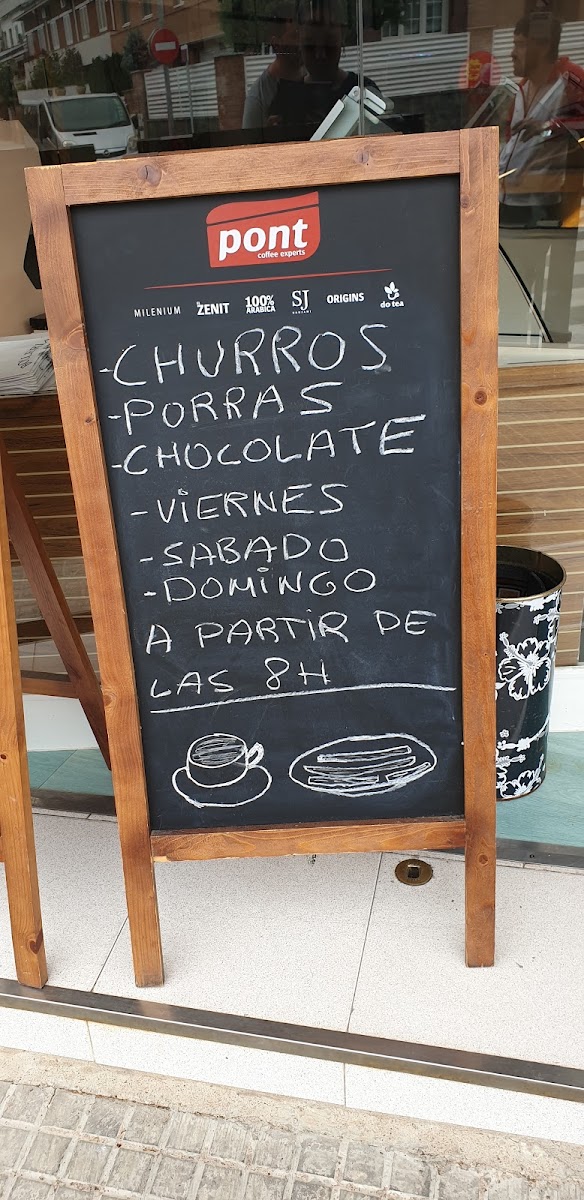 pont
coffee experts
MILENIUM ZENIT 100% ARABICA SJ ORIGINS do tea
-CHURROS
-PORRAS
-CHOCOLATE
-ViERNES
-SABADO
-DOMiNGO
A PARTiR DE
LAS 8H